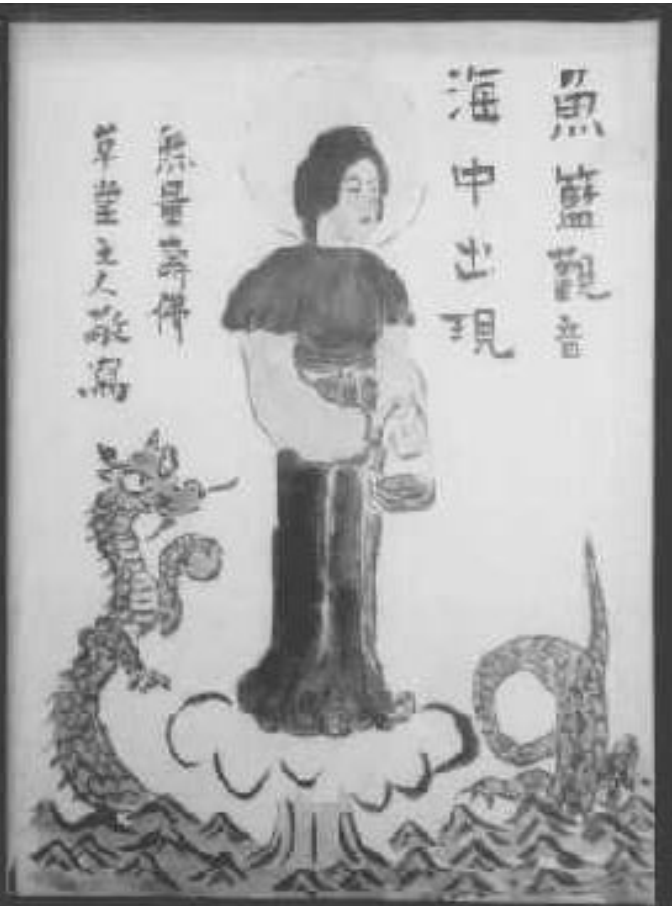 魚籃觀音
海中出現
無量壽佛
草堂主人敬寫